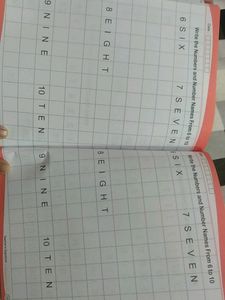 Write the Numbers and Number Names From 6 to 10
6 SIX 7 SEVEN
8 EIGHT
9 NINE 10 TEN
Write the Numbers and Number Names From 6 to 10
6 SIX 7 SEVEN
8 EIGHT
9 NINE 10 TEN